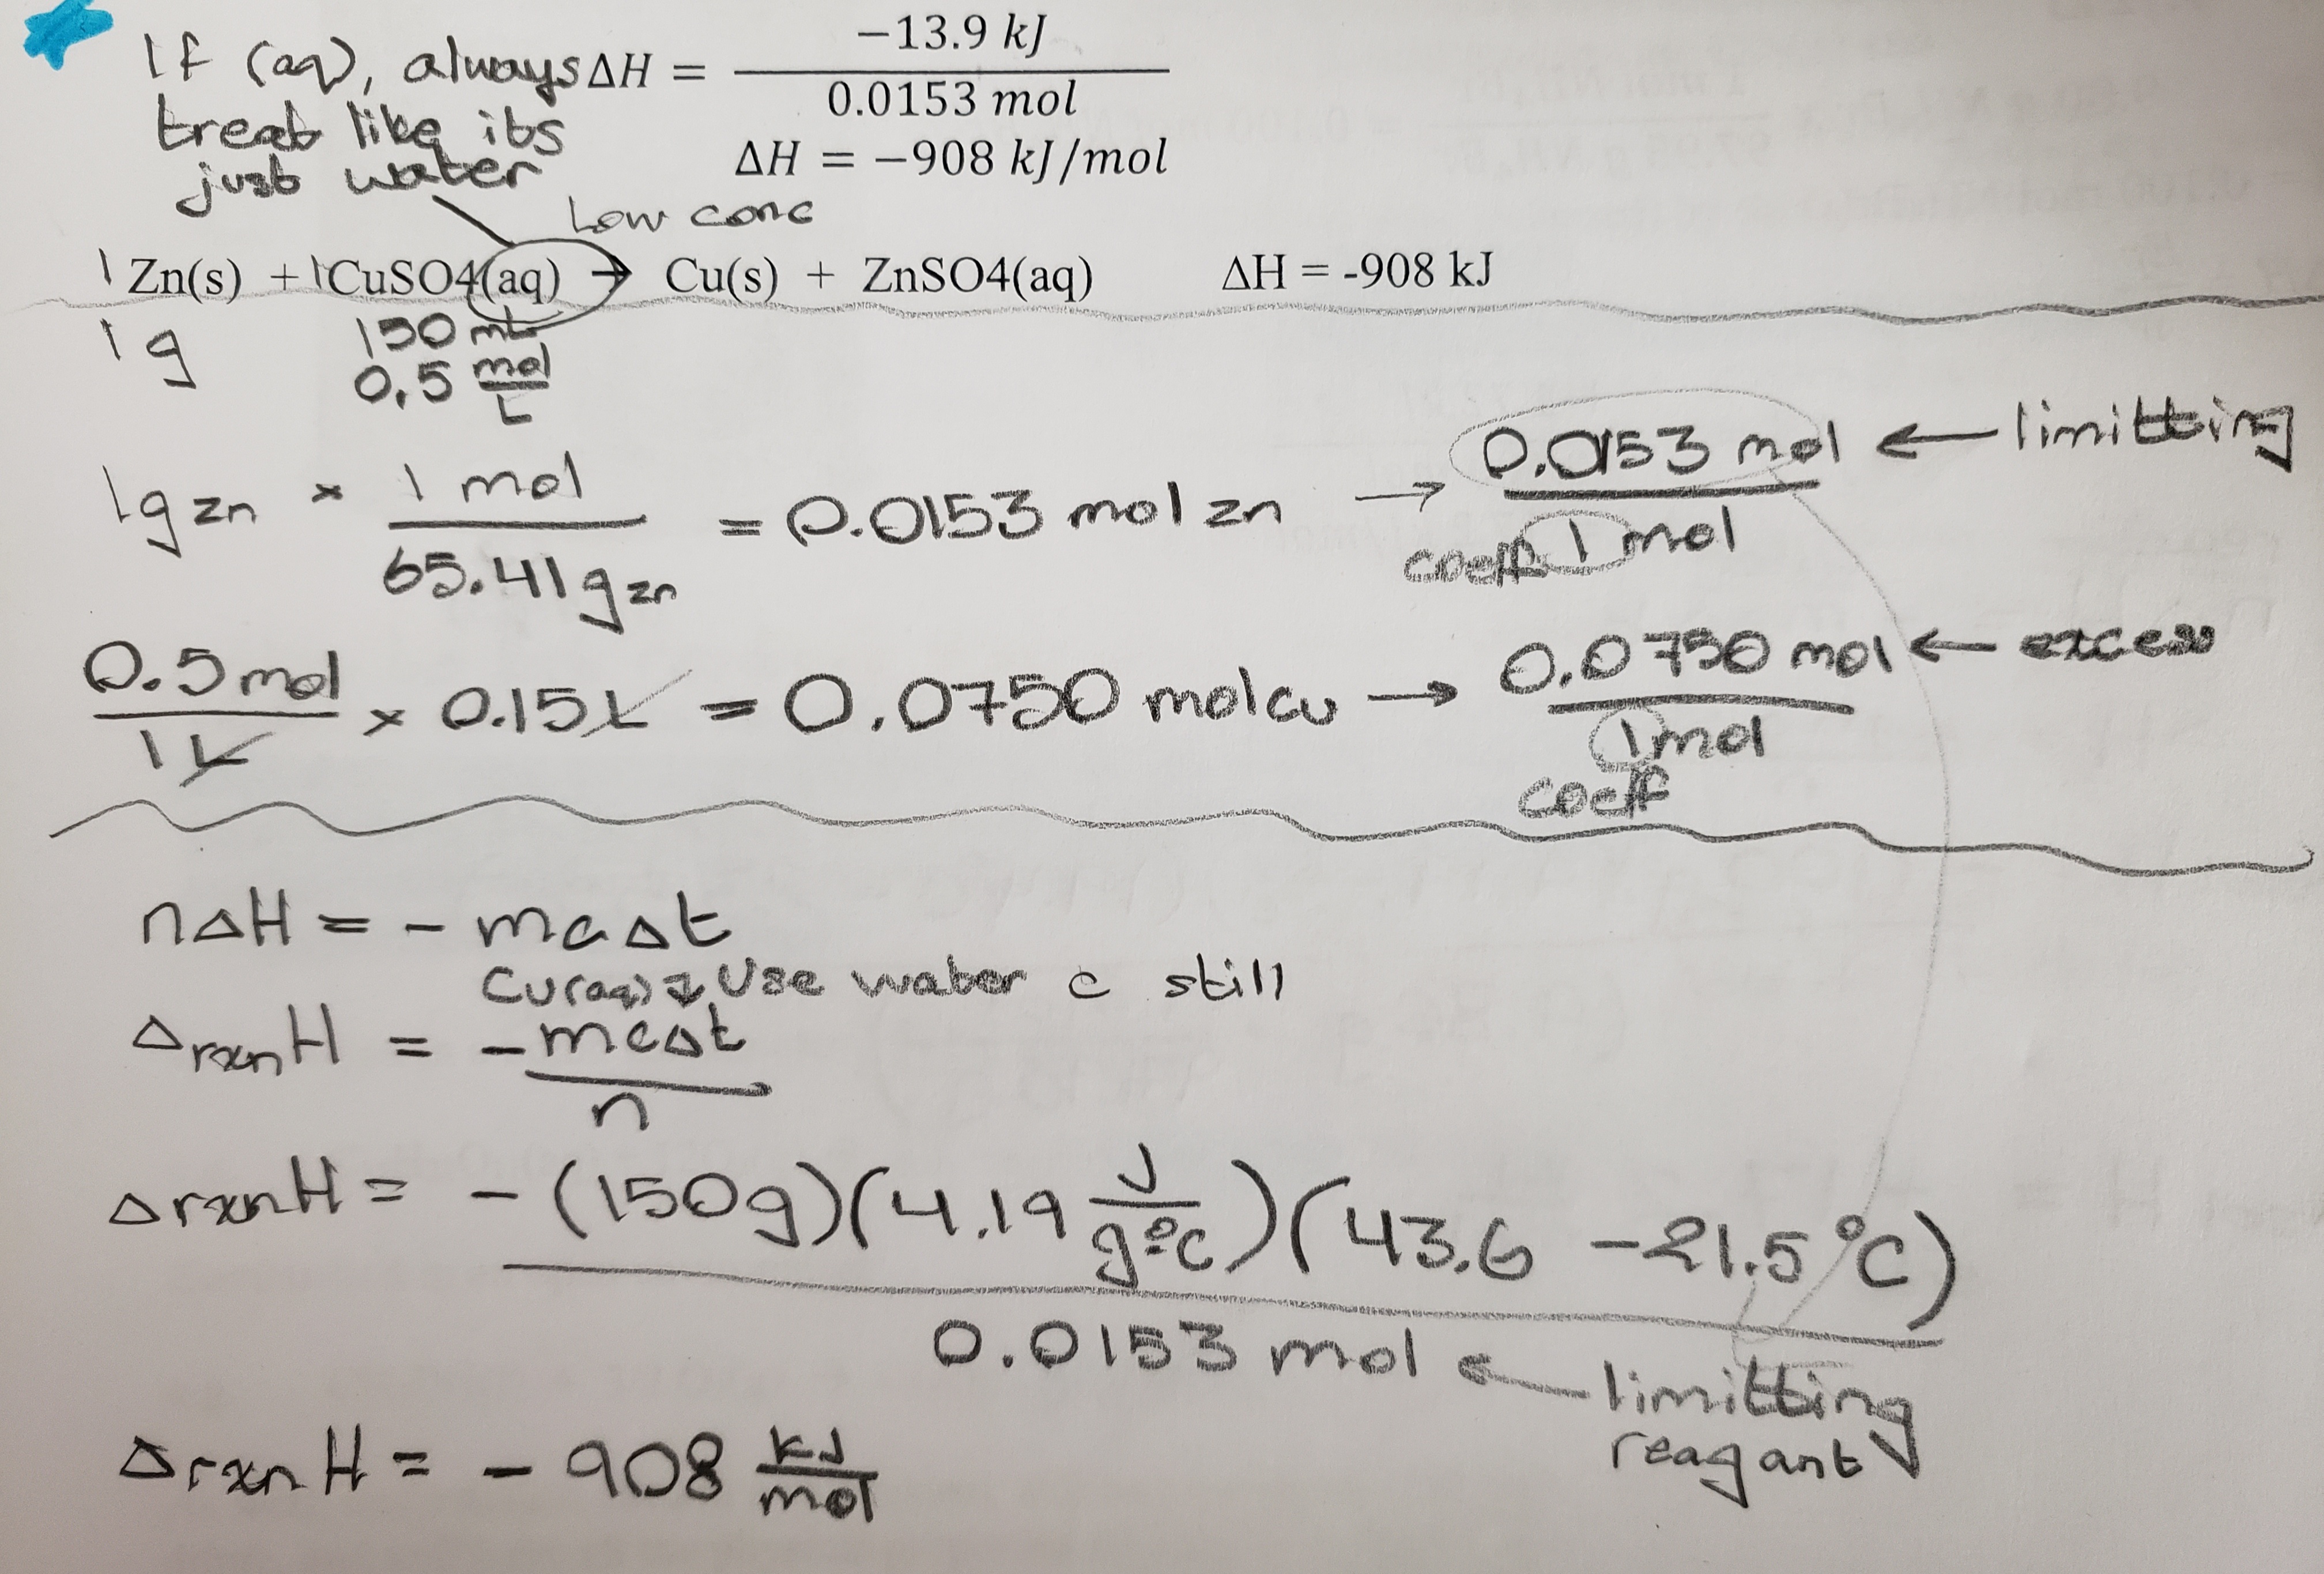 If (aq), always ΔH = −13.9 kJ / 0.0153 mol
treat like its
just water
ΔH = −908 kJ/mol
Low conc
1 Zn(s) + 1 CuSO4(aq) → Cu(s) + ZnSO4(aq) ΔH = -908 kJ
1 g 150 mL
0.5 mol/L
1g zn × 1 mol / 65.41 g zn = 0.0153 mol zn → 0.0153 mol / 1 mol ← limitting
coeff
0.5 mol / 1 L × 0.15 L = 0.0750 mol cu → 0.0750 mol / 1 mol ← excess
coeff
nΔH = - mcΔt
Cu(aq) Use water c still
ΔrxnH = - mcΔt / n
ΔrxnH = - (150g)(4.19 J/g°C)(43.6 - 21.5°C)
0.0153 mol ← limitting
reagant
ΔrxnH = - 908 kJ/mol